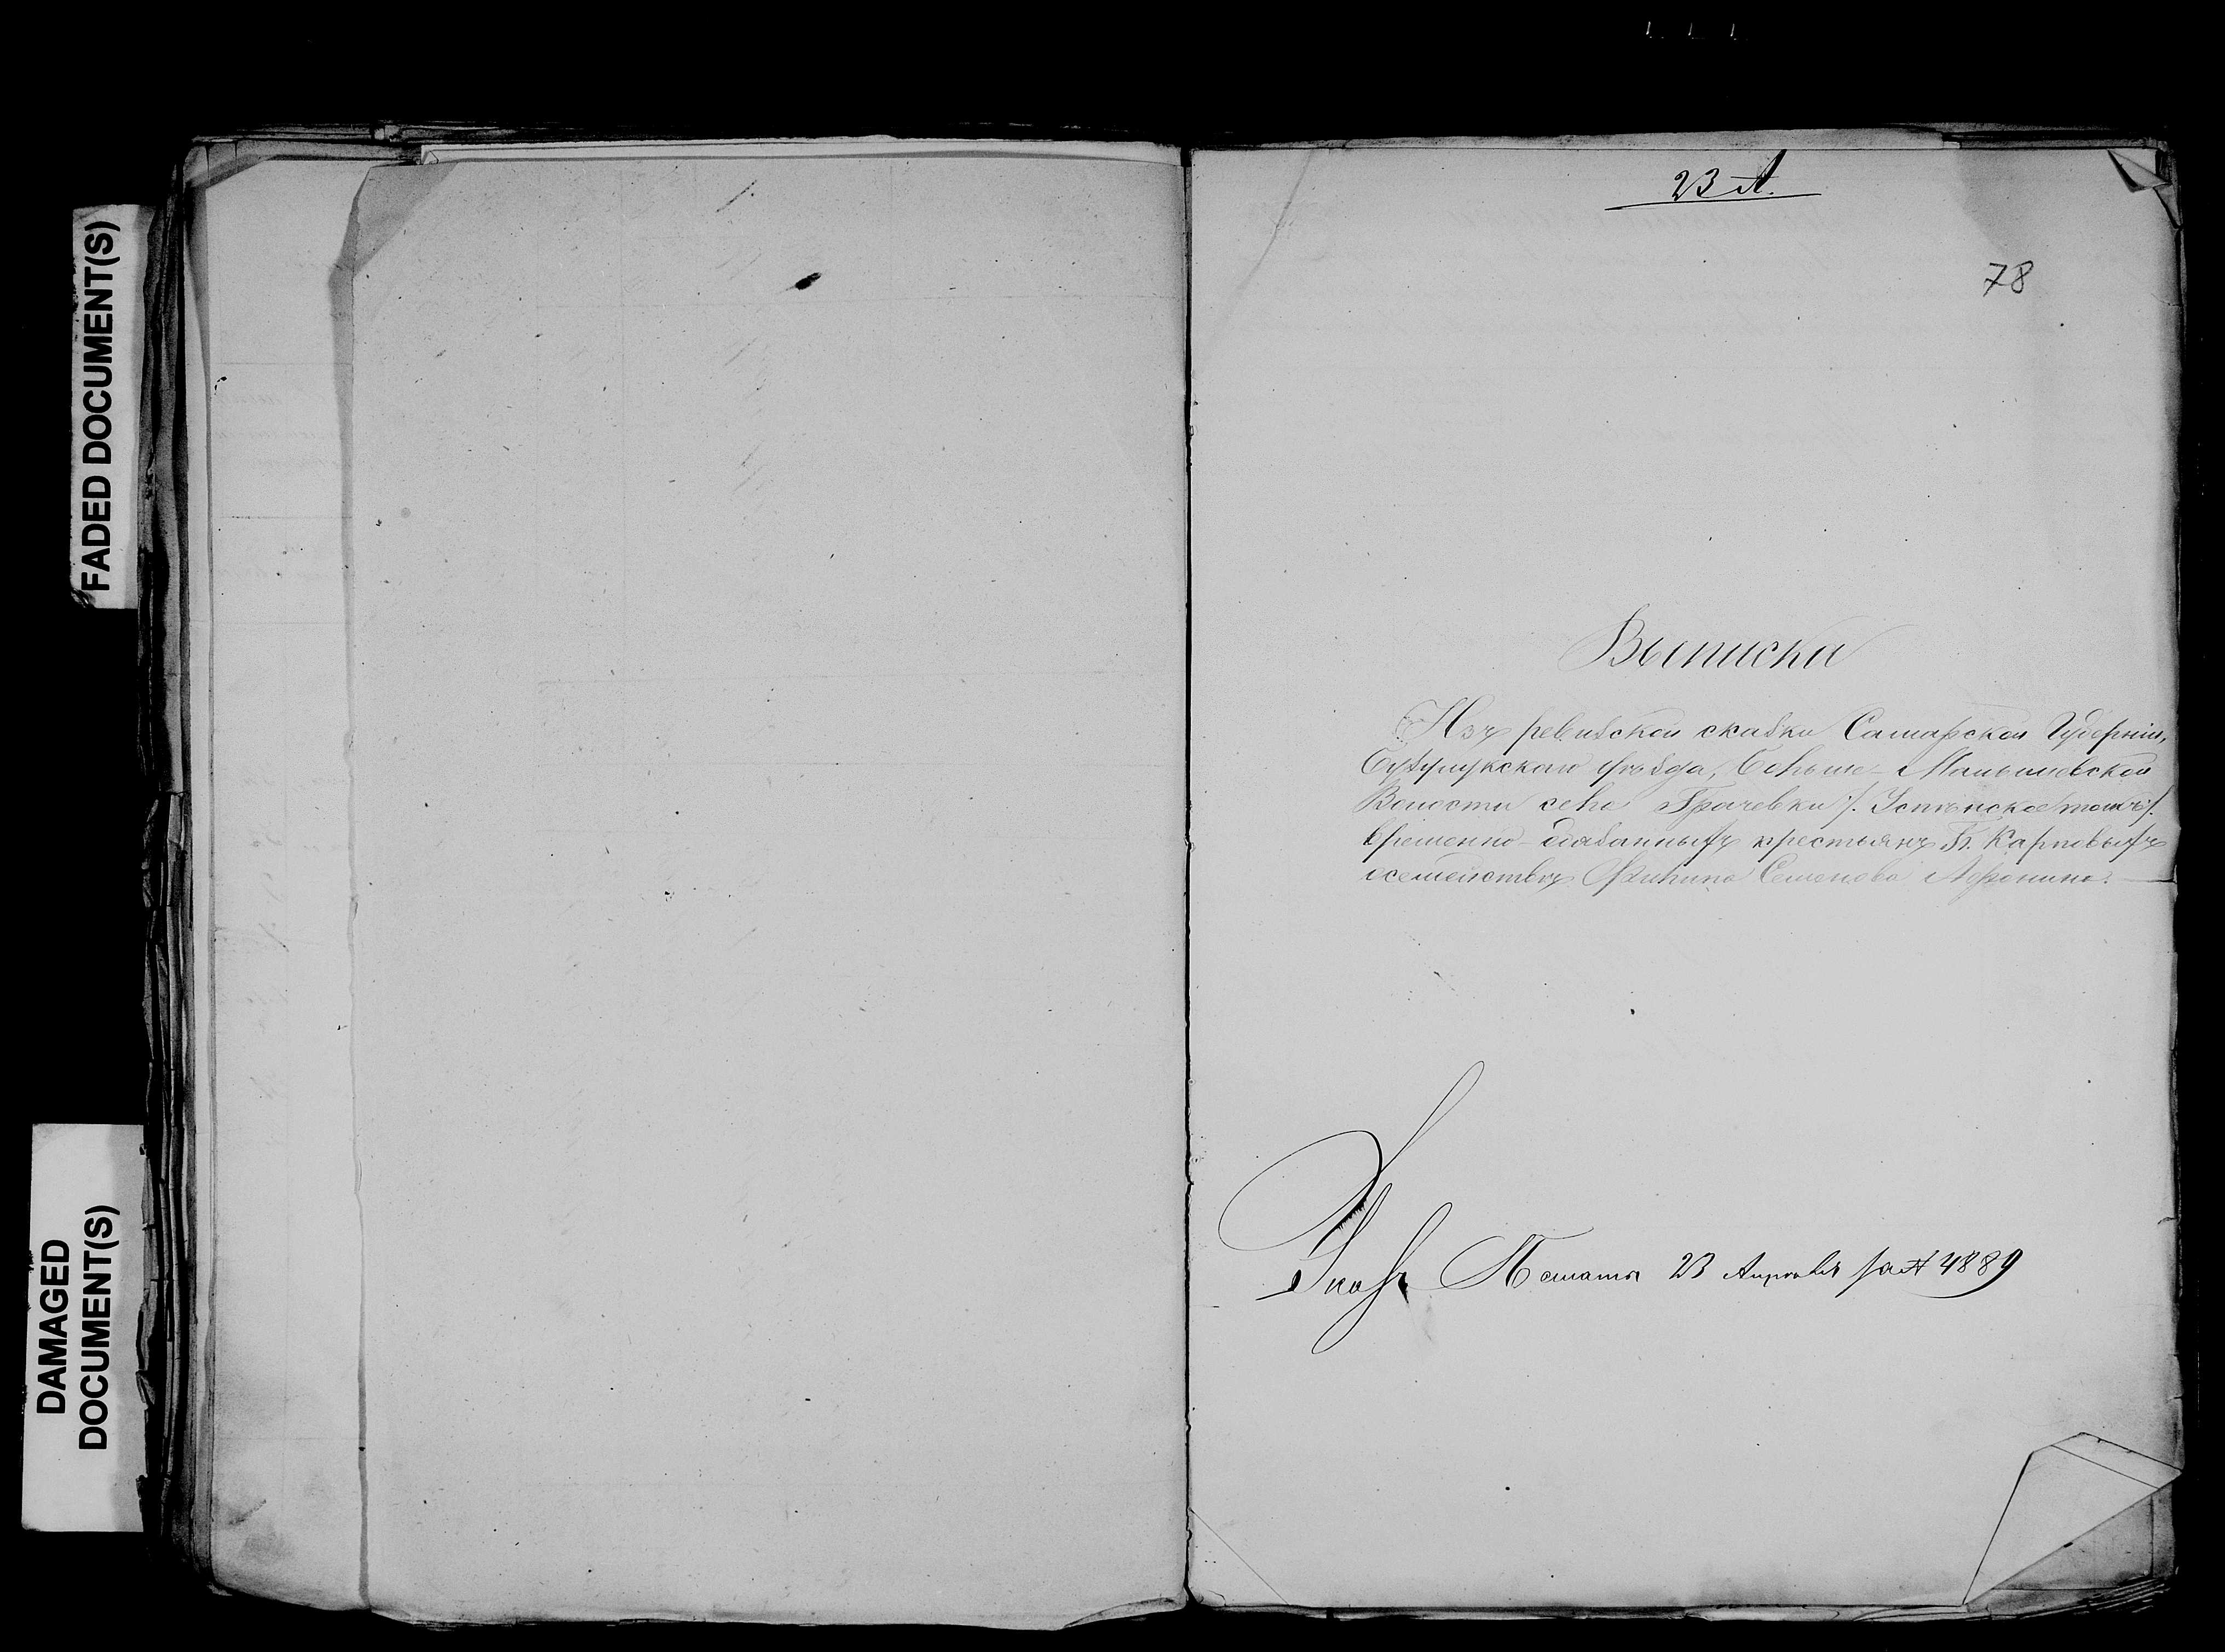 FADED DOCUMENT(S)
DAMAGED
DOCUMENT(S)
23 А.
78
Выписка
Изъ ревизской сказки Самарской Губерніи,
Бузулукскаго уѣзда, Больше-Малышевской
Волости села Грачевки /:
временно-обязанныхъ крестьянъ Гг. Карповыхъ
осемействѣ Филипа Семенова
Указъ Палаты 23 Апрѣля за № 4889